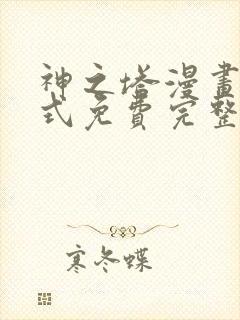 神之塔漫畫
式免費完整
寒冬蝶